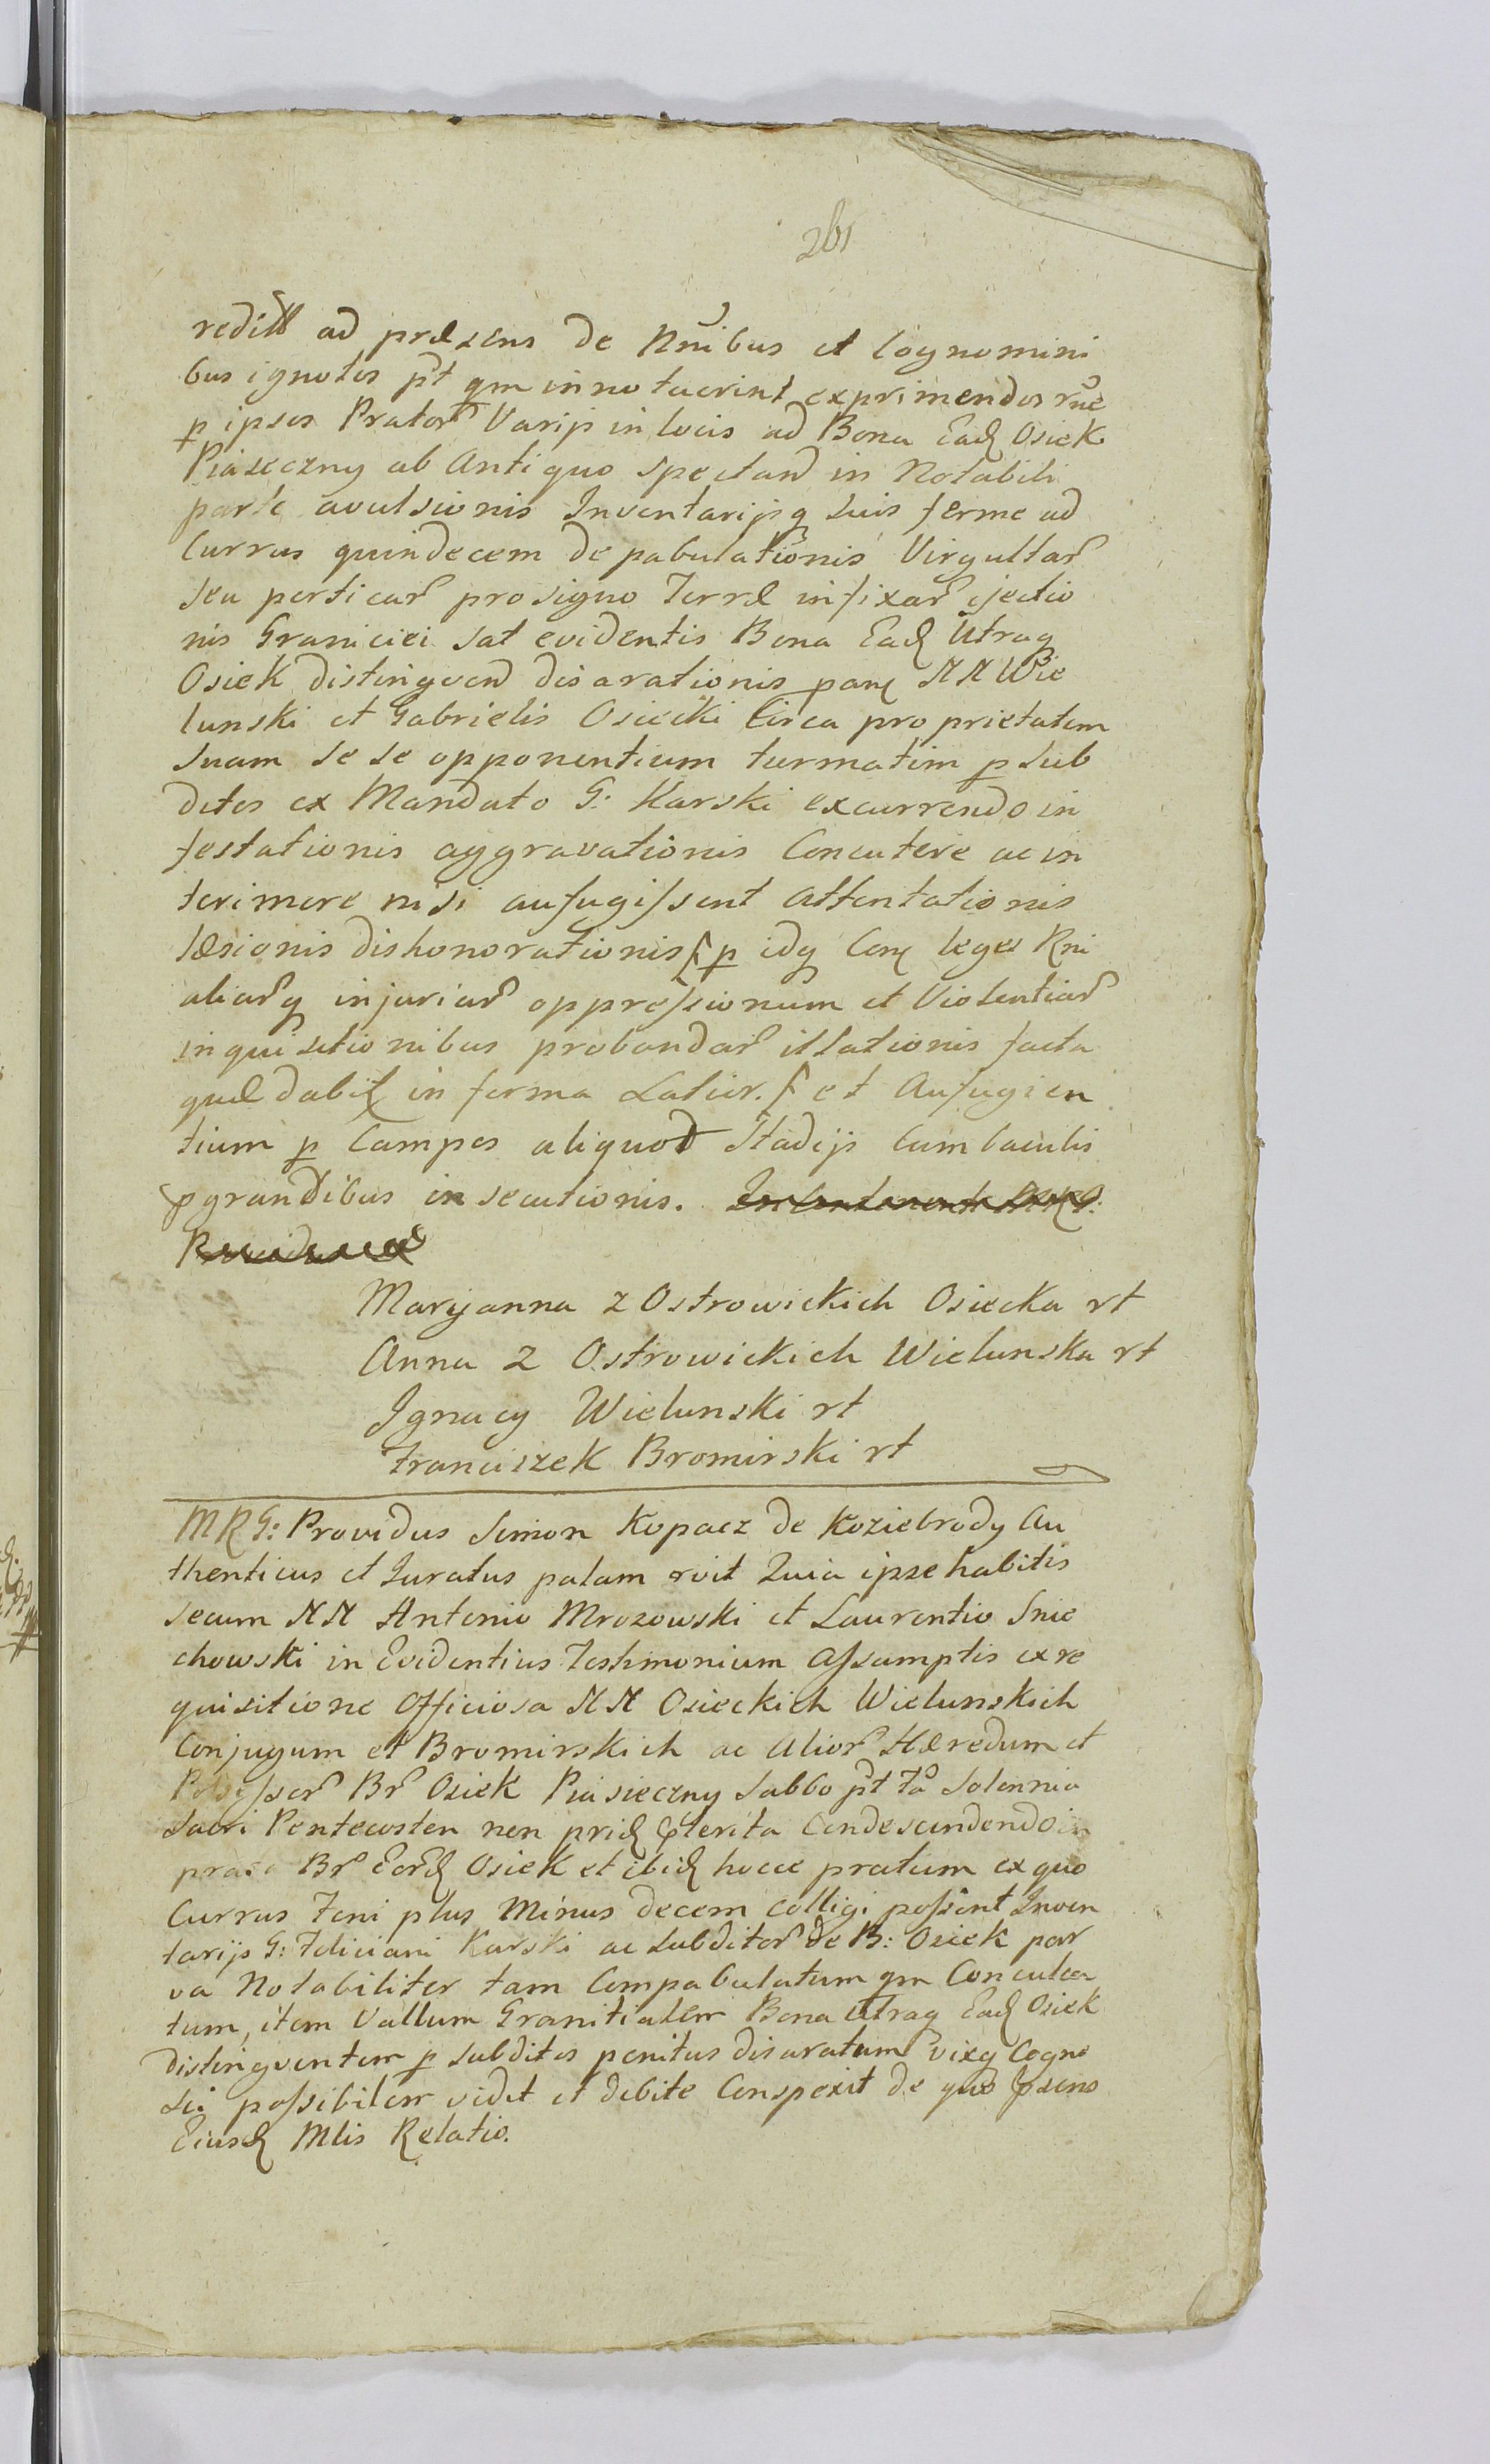 261
ad præsens de Nnibus et Cognomini
bus ignotos pt qm innotuerint exprimendos rne
p ipsos Prator Varijs in locis ad Bona Ead Osiek
Piaseczny ab Antiquo spectand in Notabili
parte avulsionis Inventarijsq suis ferme ad
Currus quindecem depabulationis Virgultar
seu perticar pro signo Terræ infixar ejectio
nis Graniciei sat evidentis Bona Ead Utraq
Osiek distingvend disarationis pane MM Wie
lunski et Gabrielis Osiecki Circa proprietatem
suam se se opponentium turmatim p sub
ditos ex Mandato G: Karski excurrendo in
festationis aggravationis Concutere ac in
terimere nisi aufugissent attentationis
læsionis dishonorationis p idq Con leges Rni
aliarq injuriar oppressionum et Violentiar
inquisitionibus probandar illationis facta
quæ dabit in forma Latior. et Aufugien
tium p Campos aliquod Stadijs Cum baculis
pgrandibus insecutionis.
Maryanna z Ostrowickich Osiecka rt
Anna z Ostrowickich Wielunska rt
Ignacy Wielunski rt
Franciszek Bromirski rt
MRG: Providus Simon Kopacz de Koziebrody Au
thenticus et Juratus palam rvit Quia ipse habitis
secum MM Antonio Mrozowski et Laurentio Snie
chowski in Evidentius Testimonium Assumptis ex re
quisitione Officiosa MM Osieckich Wielunskich
Conjugum et Bromirskich ac Alior Hæredum et
Possessor Br Osiek Piasieczny Sabbo pt fa Solennia
Sacri Pentecosten non prid pterita Condescendendo in
prata Br Eord Osiek et ibid hocce pratum ex quo
Currus Feni plus Minus decem colligi possent Inven
tarijs G: Feliciani Karski ac subditor de B: Osiek par
va Notabiliter tam Compabulatum qm Conculca
tum, item Vallum Granitialem Bona Utraq Ead Osiek
distingventem p subditos penitus disaratum vixq Cogno
sci possibilem vidit et debite Conspexit de quo psens
Eiusd Mlis Relatio.